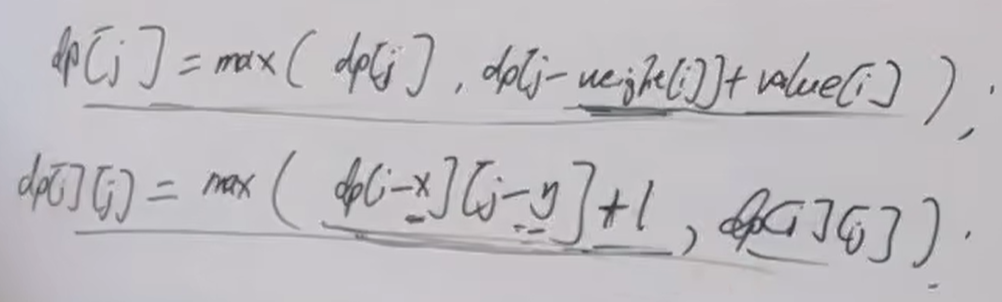 dp[j] = max( dp[j], dp[j-weight[i]]+value[i] );
dp[i][j] = max( dp[i-x][j-y]+1, dp[i][j]).